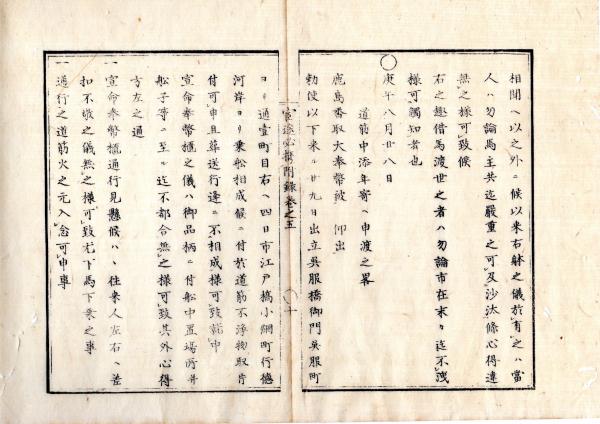 相聞ヘ以之外ニ候以来右躰之儀於有之ハ當
人ハ勿論馬主共迄嚴重之可及沙汰條心得違
無之様可致候
右之趣借馬渡世之者ハ勿論市在末々迄不洩
様可觸知者也
庚午八月廿八日
道筋中添年寄ヘ申渡之畧
鹿島香取大奉幣被 仰出
勅使以下来ル廿九日出立呉服橋御門呉服町
ヨリ通壹町目右ヘ四日市江戸橋小網町行德
河岸ヨリ乗船相成候ニ付於道筋不淨物取片
付可申且葬送行逢ニ不相成様可致就中
宣命奉幣櫃之儀ハ御品柄ニ付船中置場所并
船子等ニ至ル迄不都合無之様可致其外心得
方左之通
一宣命奉幣櫃通行見懸候ハヽ往来人左右ヘ差
扣不敬之儀無之様可致尤下馬下乗之事
一通行之道筋火之元入念可申事